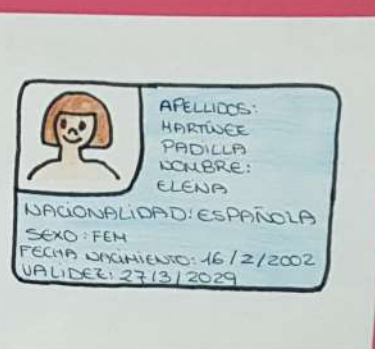 APELLIDOS:
MARTÍNEZ
PADILLA
NOMBRE:
ELENA
NACIONALIDAD: ESPAÑOLA
SEXO: FEM
FECHA NACIMIENTO: 16/2/2002
VALIDEZ: 27/3/2029